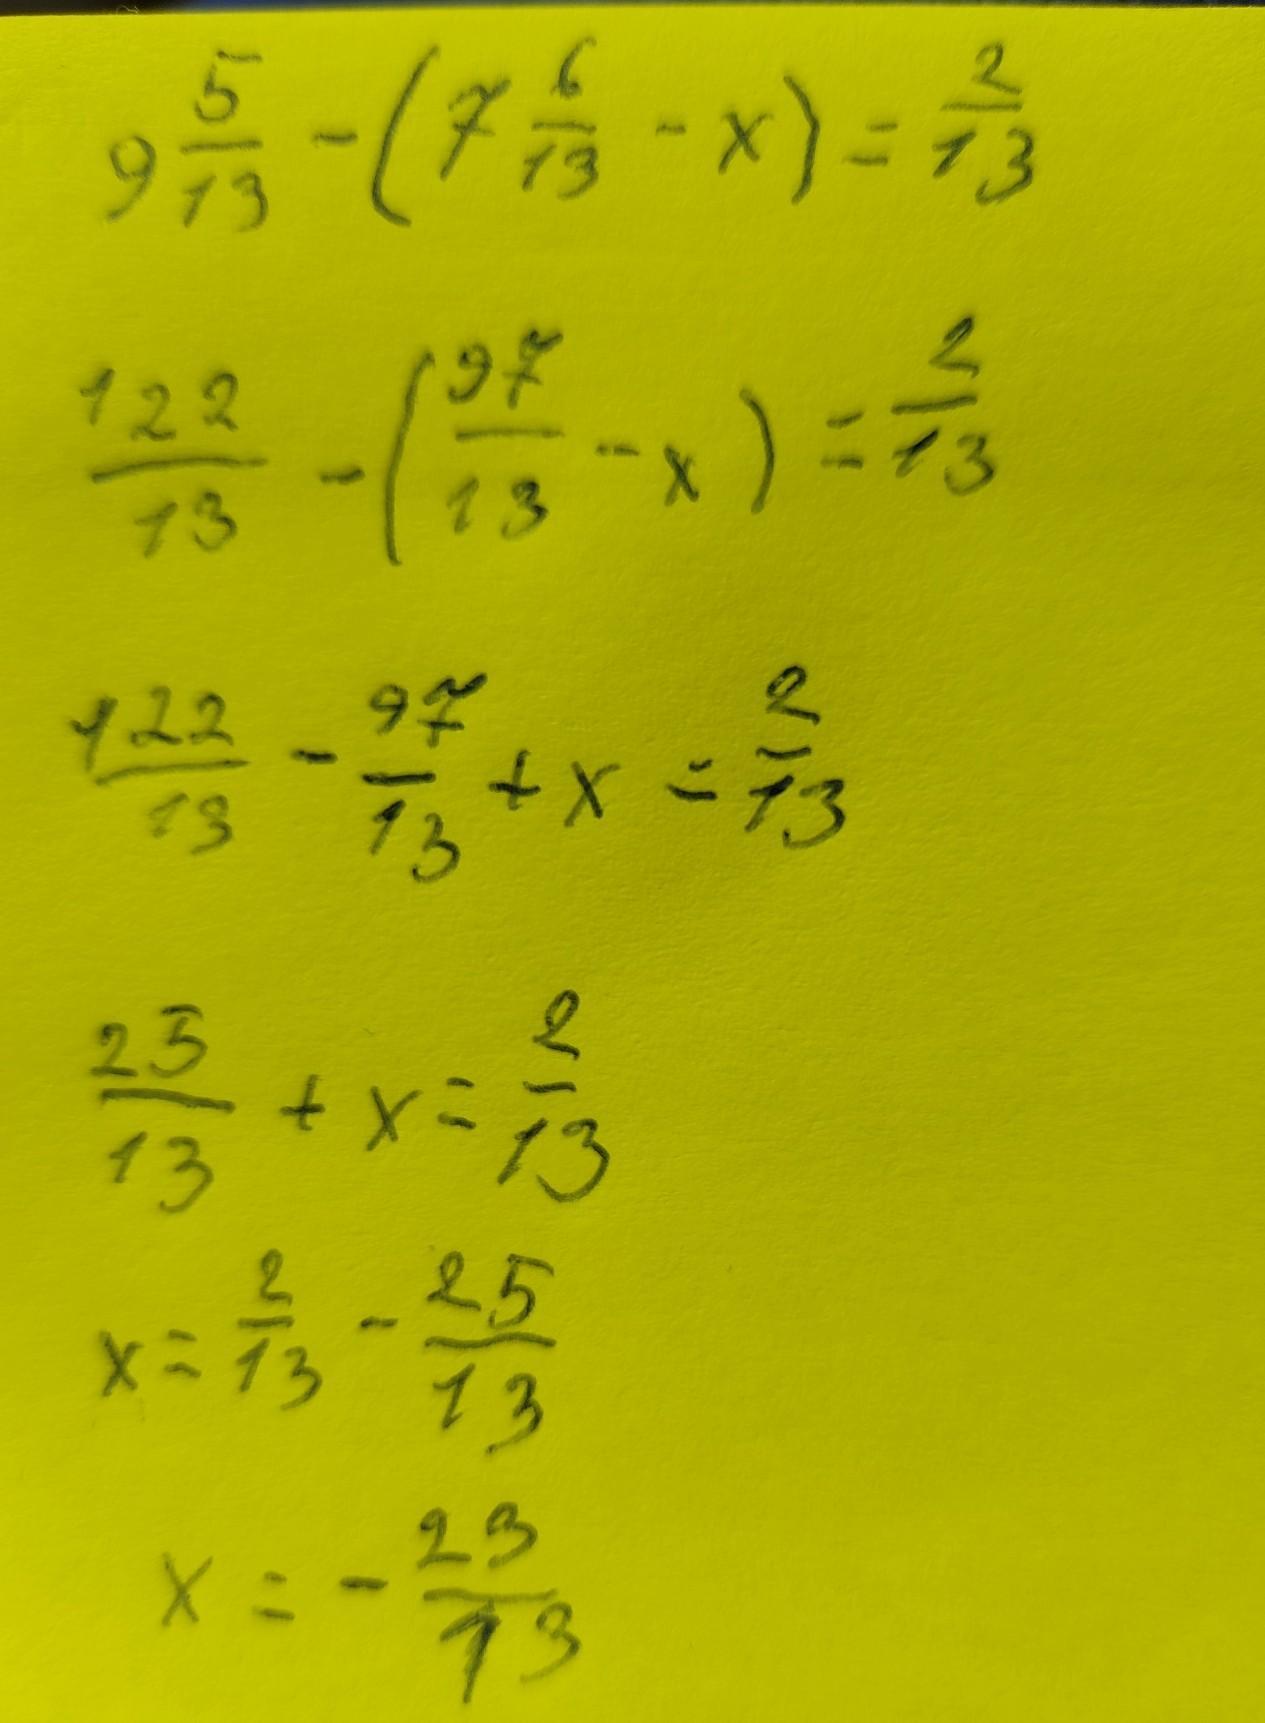 9 5/13 - (7 6/13 - x) = 2/13
122/13 - (97/13 - x) = 2/13
122/13 - 97/13 + x = 2/13
25/13 + x = 2/13
x = 2/13 - 25/13
x = - 23/13